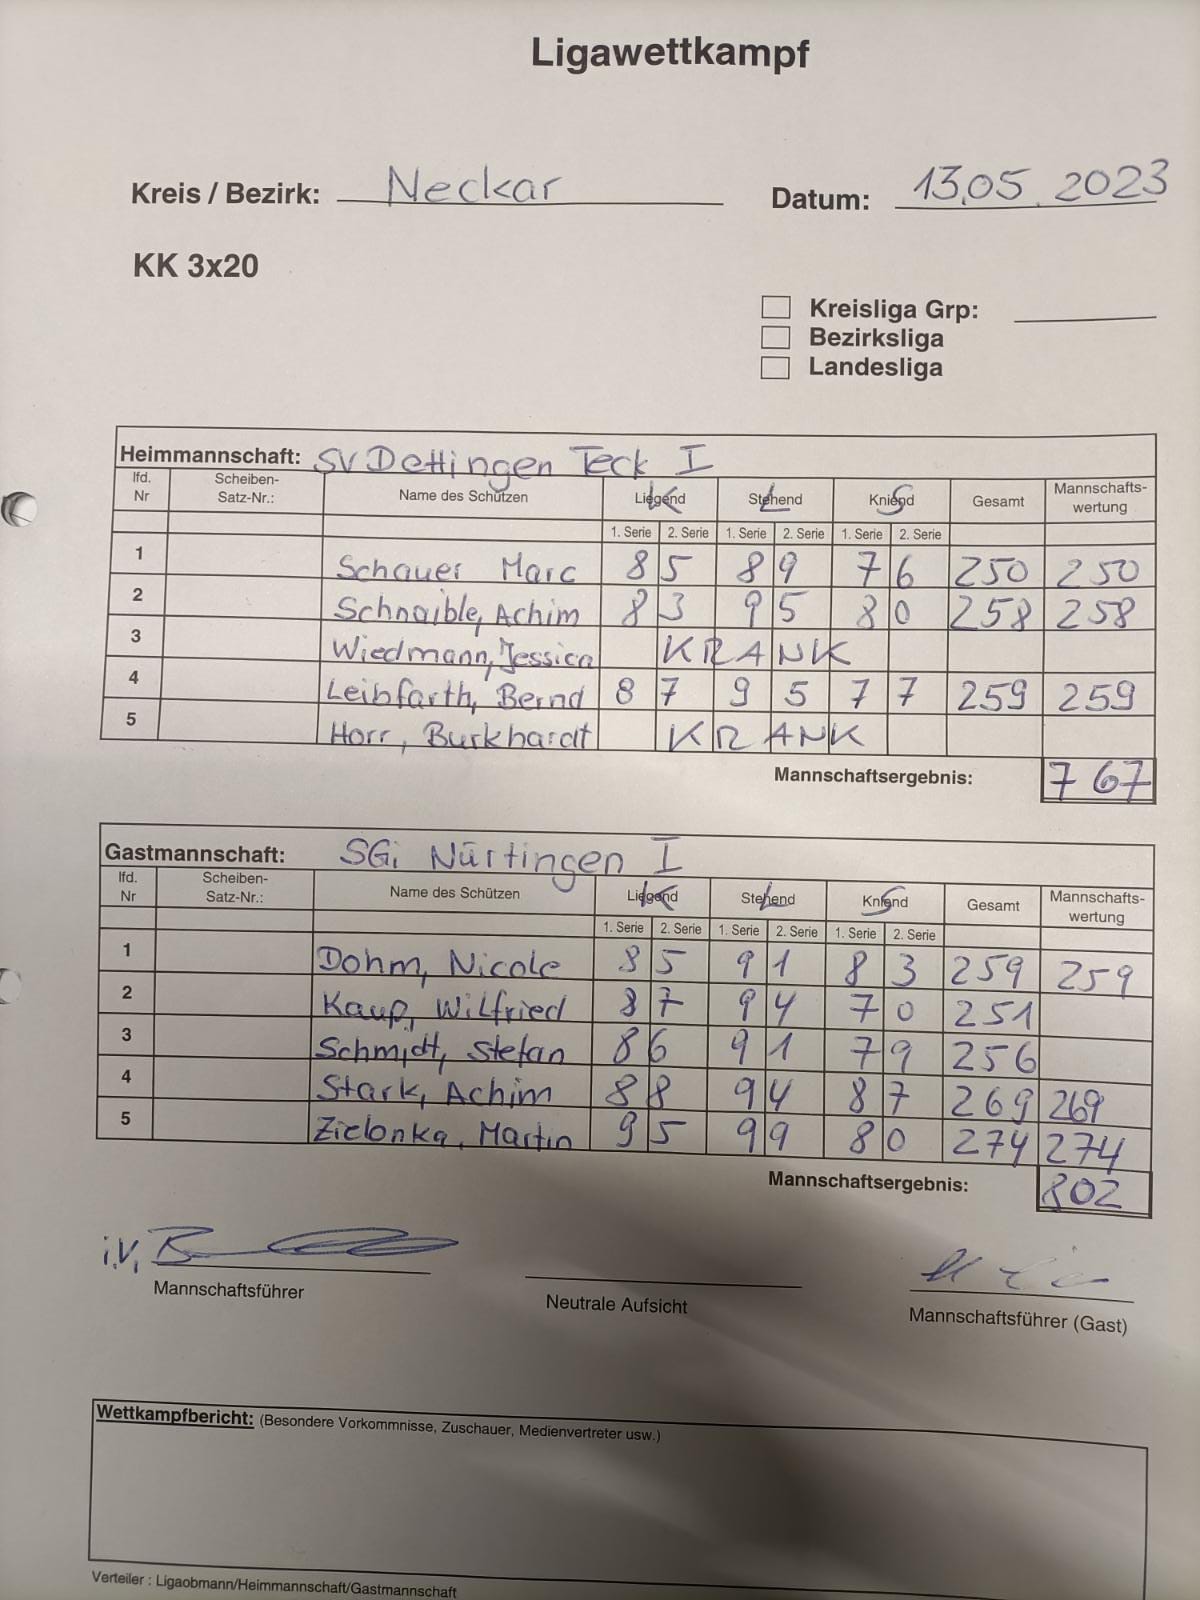 Ligawettkampf
Kreis / Bezirk: Neckar Datum: 13.05.2023
KK 3x20
Kreisliga Grp:
Bezirksliga
Landesliga
Heimmannschaft: SV Dettingen Teck I
lfd. Nr Scheiben-Satz-Nr.: Name des Schützen Liegend K Stehend L Kniend S Gesamt Mannschafts-wertung
1. Serie 2. Serie 1. Serie 2. Serie 1. Serie 2. Serie
1 Schauer Marc 85 89 76 250 250
2 Schnaible, Achim 83 95 80 258 258
3 Wiedmann, Jessica KRANK
4 Leibfarth, Bernd 87 95 77 259 259
5 Horr, Burkhardt KRANK
Mannschaftsergebnis: 767
Gastmannschaft: SGi Nürtingen I
lfd. Nr Scheiben-Satz-Nr.: Name des Schützen Liegend K Stehend L Kniend S Gesamt Mannschafts-wertung
1. Serie 2. Serie 1. Serie 2. Serie 1. Serie 2. Serie
1 Dohm, Nicole 85 91 83 259 259
2 Kaup, Wilfried 87 94 70 251
3 Schmidt, Stefan 86 91 79 256
4 Stark, Achim 88 94 87 269 269
5 Zielonka, Martin 95 99 80 274 274
Mannschaftsergebnis: 802
i.V.
Mannschaftsführer Neutrale Aufsicht Mannschaftsführer (Gast)
Wettkampfbericht: (Besondere Vorkommnisse, Zuschauer, Medienvertreter usw.)
Verteiler : Ligaobmann/Heimmannschaft/Gastmannschaft